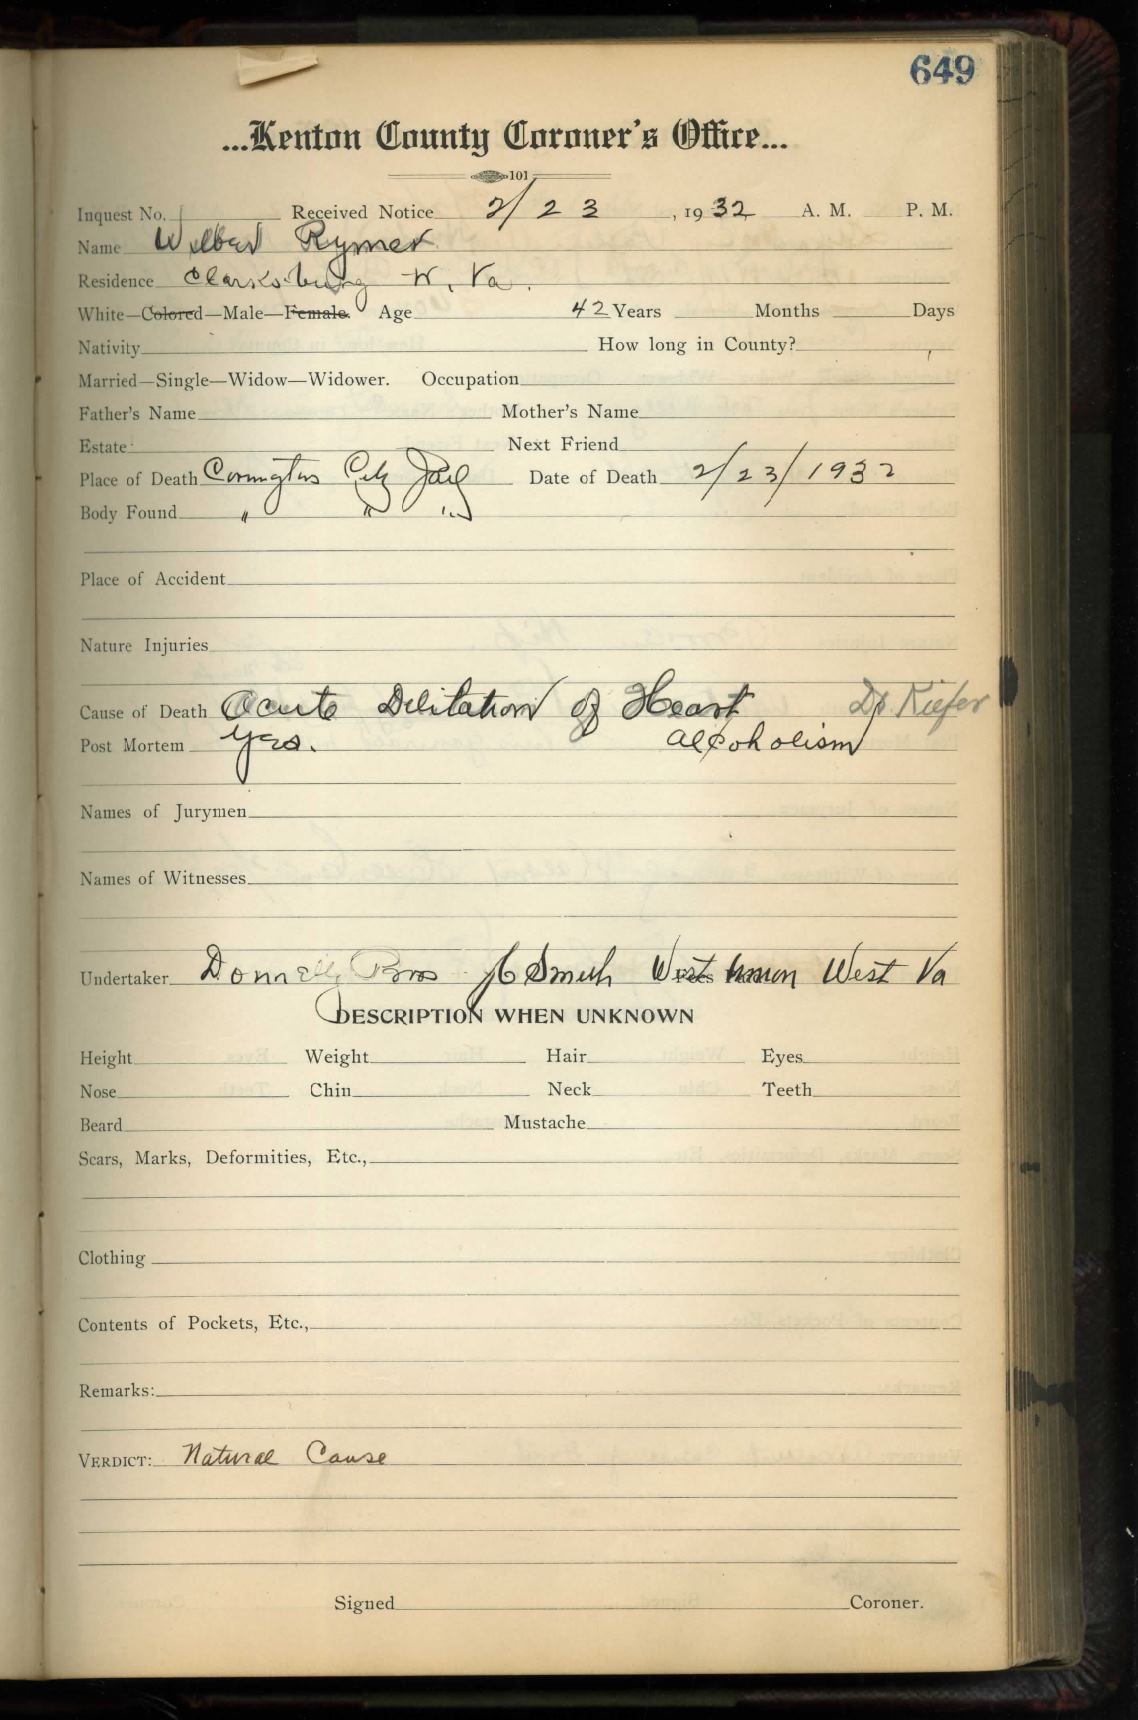 649
...Kenton County Coroner's Office...
101
Inquest No. Received Notice 2/23, 1932 A. M. P. M.
Name Wilber Rymer
Residence Clarksburg W. Va.
White—Colored—Male—Female. Age 42 Years Months Days
Nativity How long in County?
Married—Single—Widow—Widower. Occupation
Father's Name Mother's Name
Estate Next Friend
Place of Death Covington City Jail Date of Death 2/23/1932
Body Found " " "
Place of Accident
Nature Injuries
Cause of Death Acute Dilitation of Heart Dr. Kiefer
Post Mortem Yes. Alcoholism
Names of Jurymen
Names of Witnesses
Undertaker Donnelly Bros Smith West Union West Va
DESCRIPTION WHEN UNKNOWN
Height Weight Hair Eyes
Nose Chin Neck Teeth
Beard Mustache
Scars, Marks, Deformities, Etc.,
Clothing
Contents of Pockets, Etc.,
Remarks:
VERDICT: Natural Cause
Signed Coroner.